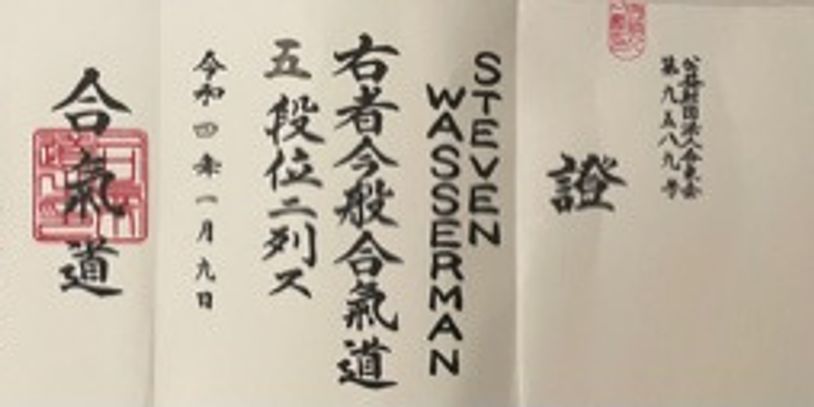 公益財団法人合気会
第九五八九号
證
STEVEN
WASSERMAN
右者今般合氣道
五段位ニ列ス
令和四年一月九日
合氣道